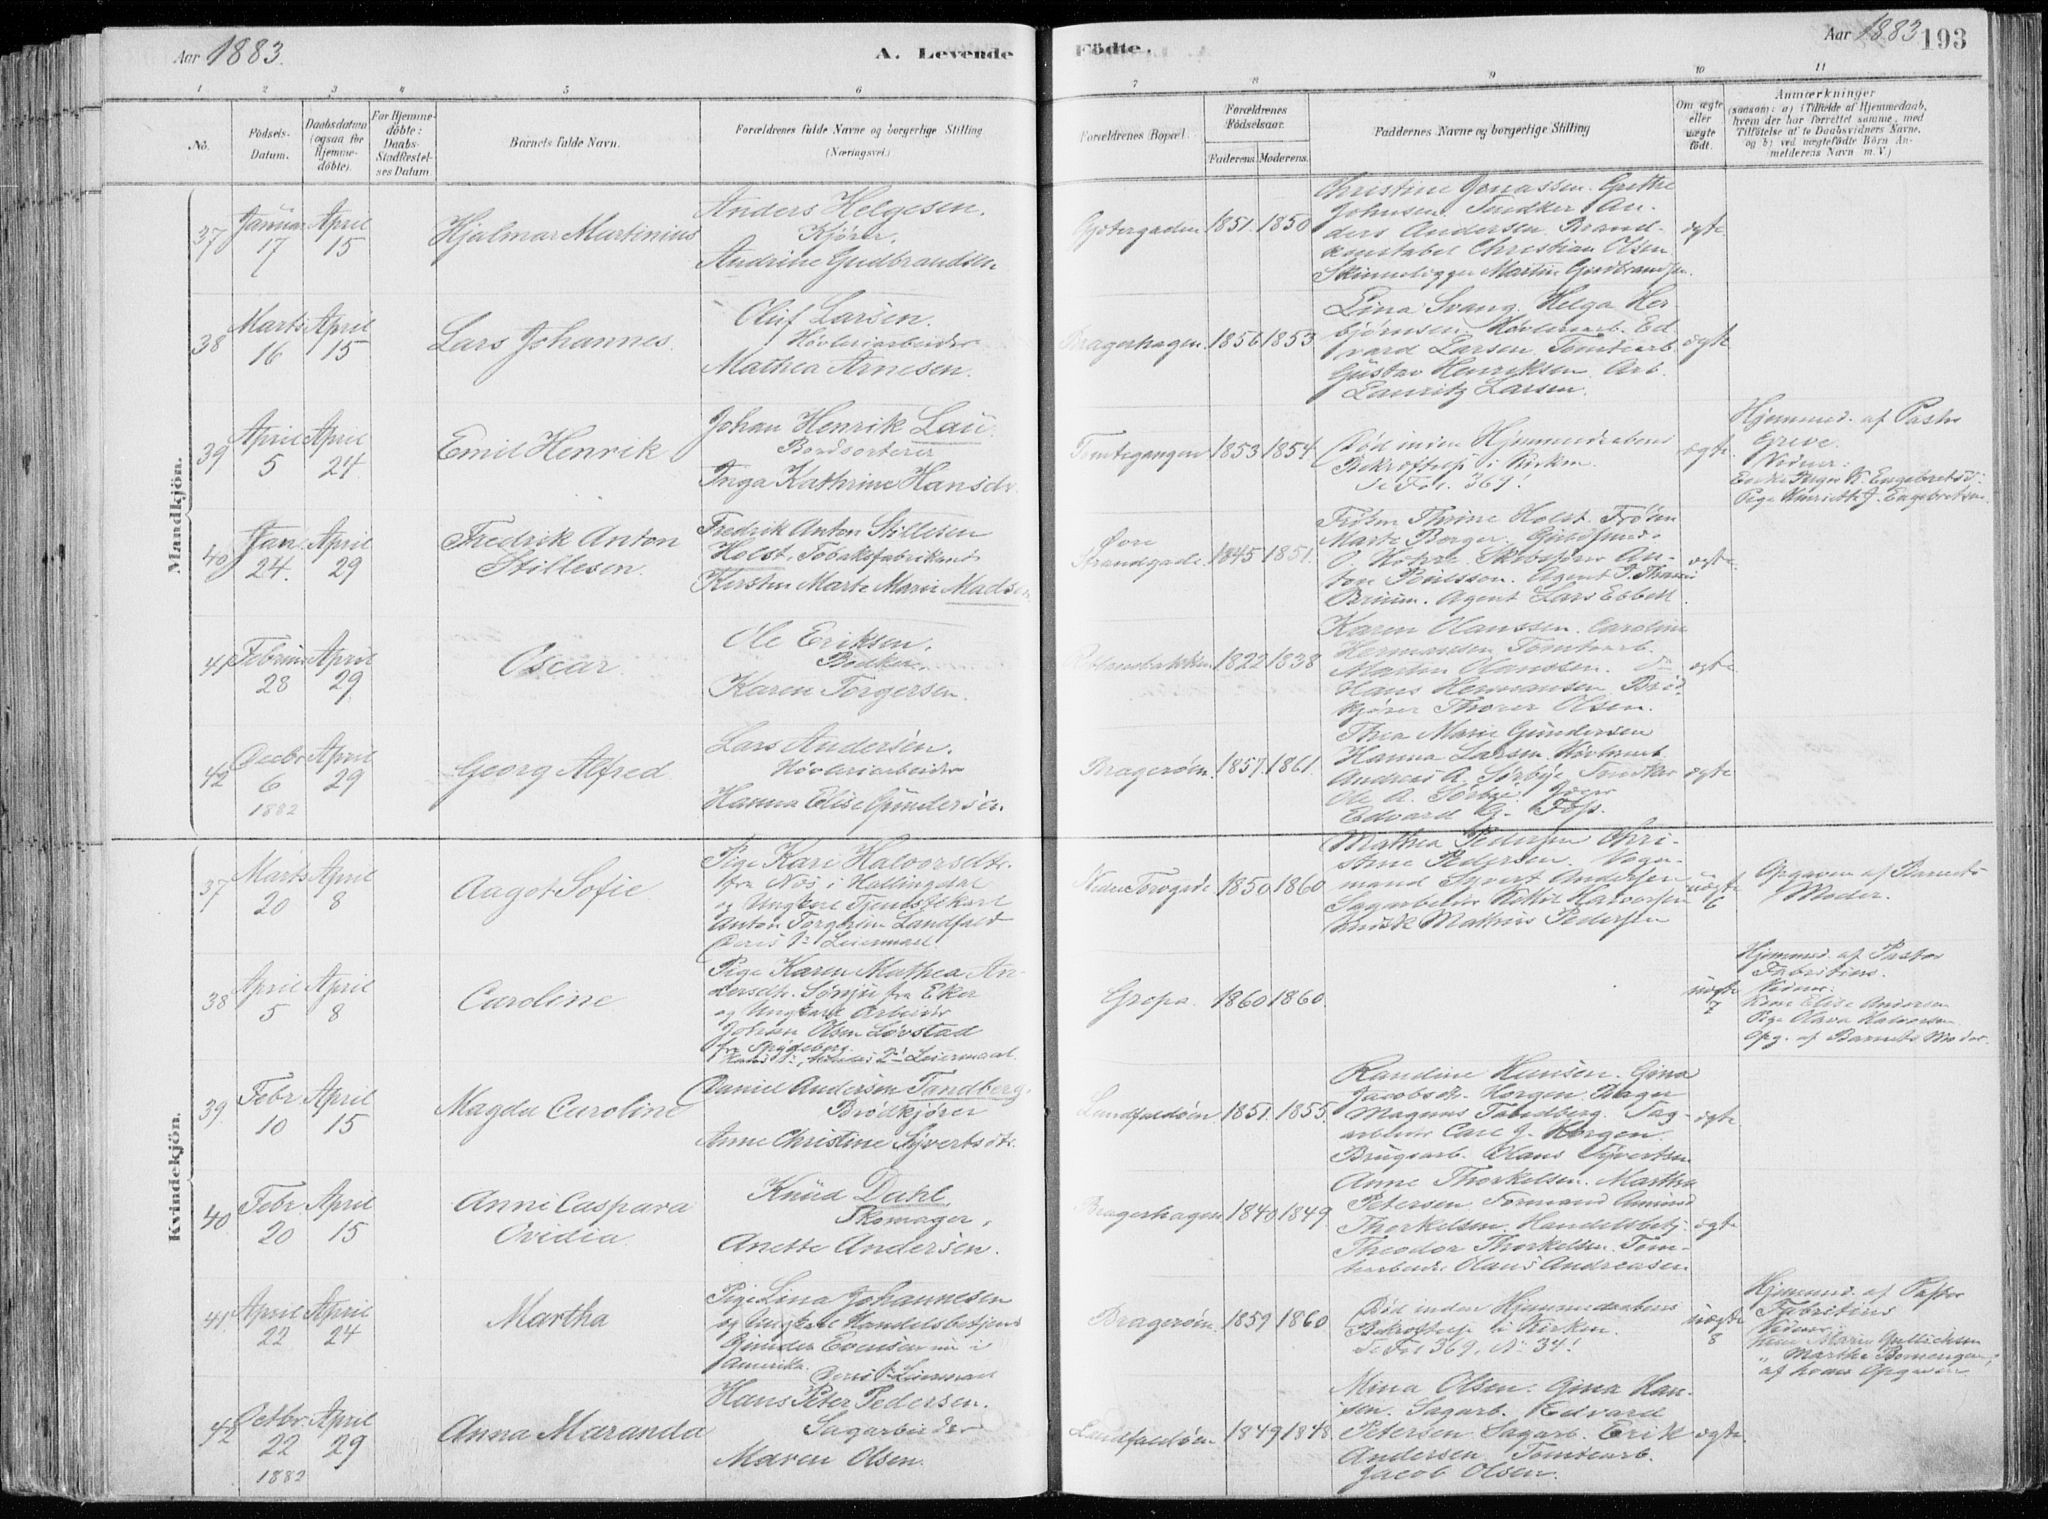 Aar 1883.
A. Levende Födte.
Aar 1883
193
1 2 3 4 5 6 7 8 9 10 11
No.
Födsels-Datum.
Daabsdatum (ogsaa for Hjemmedöbte).
For Hjemmedöbte: Daabs-Stadfæstelses Datum.
Barnets fulde Navn.
Forældrenes fulde Navne og borgerlige Stilling (Næringsvei.)
Forældrenes Bopæl.
Forældrenes Födselsaar.
Faderens. Moderens.
Faddernes Navne og borgerlige Stilling
Om ægte eller uægte födt.
Anmærkninger (saasom: a) i Tilfælde af Hjemmedaab, hvem der har forrettet samme, med Tilföielse af to Daabsvidners Navne, og b) ved uægtefödte Börn Anmelderens Navn m. V.)
Mandkjön.
37 Januar 17 April 15 Hjalmar Martinius
Anders Helgesen.
Kjörer.
Andrine Gudbrandsen
1851. 1850
Christine Jonassen. Grethe
Johnsen. Snedker An-
ders Andersen. Brand-
konstabel Christian Olsen
Martin Gudbrandsen.
ægte
38 Marts 16 April 15 Lars Johannes.
Oluf Larsen.
Hövleriarbeider
Mathea Arnesen.
Bragerhagen. 1856 1853
Lina Svang. Helga Her-
björnsen. Hövleriarb. Ed-
vard Larsen. Tomtearb.
Gustav Henriksen. Arb.
Lauritz Larsen.
ægte
39 April 5 April 24 Emil Henrik
Johan Henrik Lau.
Bordsorterer
Inga Kathrine Hansdr.
Tomtegangen 1853 1854
Död inden Hjemmedaabens
Bekræftelse i Kirken
Se Fol. 369!
ægte
Hjemmed. af Pastor
Greve.
Vidner:
Enke Inger K. Engebretsd:
Pige Henriette J. Engebretsen
40 Jan. 24. April 29 Fredrik Anton
Stillesen.
Fredrik Anton Stillesen
Holst. Tobaksfabrikant
Kirsten Marte Marie Madsen
Övre
Strandgade 1845 1851.
Fröken Thrine Holst. Fröken
Marte Borger.
Agent Lars Ebbell
ægte
41 Februar 28 April 29 Oscar
Ole Eriksen.
Bödker.
Karen Torgersen.
1822 1838
Karen Olaussen. Caroline
Hermansen. Tomtearb.
Martin Olaussen. Do
Hans Hermansen. Bröd-
kjörer Thorer Olsen.
ægte
42 Decbr. 6 1882 April 29 Georg Alfred
Lars Andersen.
Hövleriarbeider
Hanna Elise Gundersen.
Brageröen. 1857. 1861.
Thea Marie Gundersen
Hanna Larsen. Hövlemest.
Andreas A. Sörbye. Snedker
Ole A. Sörbye.
Edvard G. Foss.
ægte
Kvindekjön.
37 Marts 20 April 8 Aagot Sofie
Pige Kari Halvorsdtr.
fra Næs i Hallingdal
og Ungkarl Tjenestekarl
Anton Torgersen Landfald
Deres 1ste Leiermaal
Nedre Torvgade 1850 1860
Mathea Pedersen Chri-
stine Pedersen. Vogn-
mand Syvert Andersen
Sagarbeider Kittil Halvorsen
Mathias Pedersen
uægte
6
Opgaven af Barnets
Moder.
38 April 5 April 8 Caroline
Pige Karen Mathea An-
dersdtr. Sönju fra Eker
og Ungkarl Arbeider
Johan Olsen Lövstad
fra Spydeberg.
Hans 1ste, hendes 2det Leiermaal.
Gropa. 1860 1860.
uægte
7
Hjemmed. af Pastor
Fabritius.
Vidner:
Kone Elise Andersen
Pige Olava Halvorsen
Opg. af Barnets Moder.
39. Febr. 10 April 15 Magda Caroline
Daniel Andersen Tandberg.
Brödkjörer
Anne Christine Syvertsdtr.
Landfaldöen. 1851. 1855.
Randine Hansen. Gina
Jacobsdtr. Horgen. Bager
Magnus Tandberg. Sag-
arbeider Carl J. Horgen.
Brugsarb. Olaus Syvertsen
ægte
40 Febr. 20 April 15 Anne Caspara
Ovidia.
Knud Dahl
Skomager,
Anette Andersen.
Bragerhagen 1840 1849.
Anne Thorkelsen. Martha
Petersen. Formand Amund
Thorkelsen. Handelsbetj.
Theodor Thorkelsen. Tom-
tearbeider Olaus Andreasen
ægte
41. April 22 April 24 Martha
Pige Lina Johannesen
og Ungkarl Handelsbetjent
Gunder Evensen nu i
Amerika.
Deres 1. Leiermaal
Brageröen. 1859 1860
Död inden Hjemmedaabens
Bekræftelse i Kirken.
Se Fol 369, No 34!
uægte
8
Hjemmed. af Pastor
Fabritius
Vidner:
Marie Gullichsen
" Marthe Bomengen,
af hvem Opgaven
42 Octbr. 22 1882 April 29 Anna Maranda
Hans Peter Pedersen.
Sagarbeider
Maren Olsen.
Landfaldöen. 1849 1848.
Mina Olsen. Gina Han-
sen. Sagarb. Edvard
Petersen. Sagarb. Erik
Andersen. Tomtearb.
Jacob Olsen.
ægte.